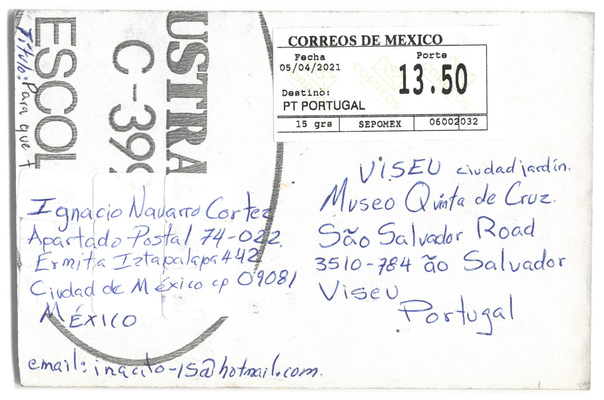 CORREOS DE MEXICO
Fecha Porte
05/04/2021 13.50
Destino:
PT PORTUGAL
15 grs SEPOMEX 06002032
USTRA
C-399
ESCOL
Título: Para que
Ignacio Navarro Cortez
Apartado Postal 74-022
Ermita Iztapalapa 442
Ciudad de México cp 09081
MÉXICO
email: inacito-15@hotmail.com.
VISEU ciudad jardín.
Museo Quinta de Cruz.
São Salvador Road
3510-784 ão Salvador
Viseu
Portugal